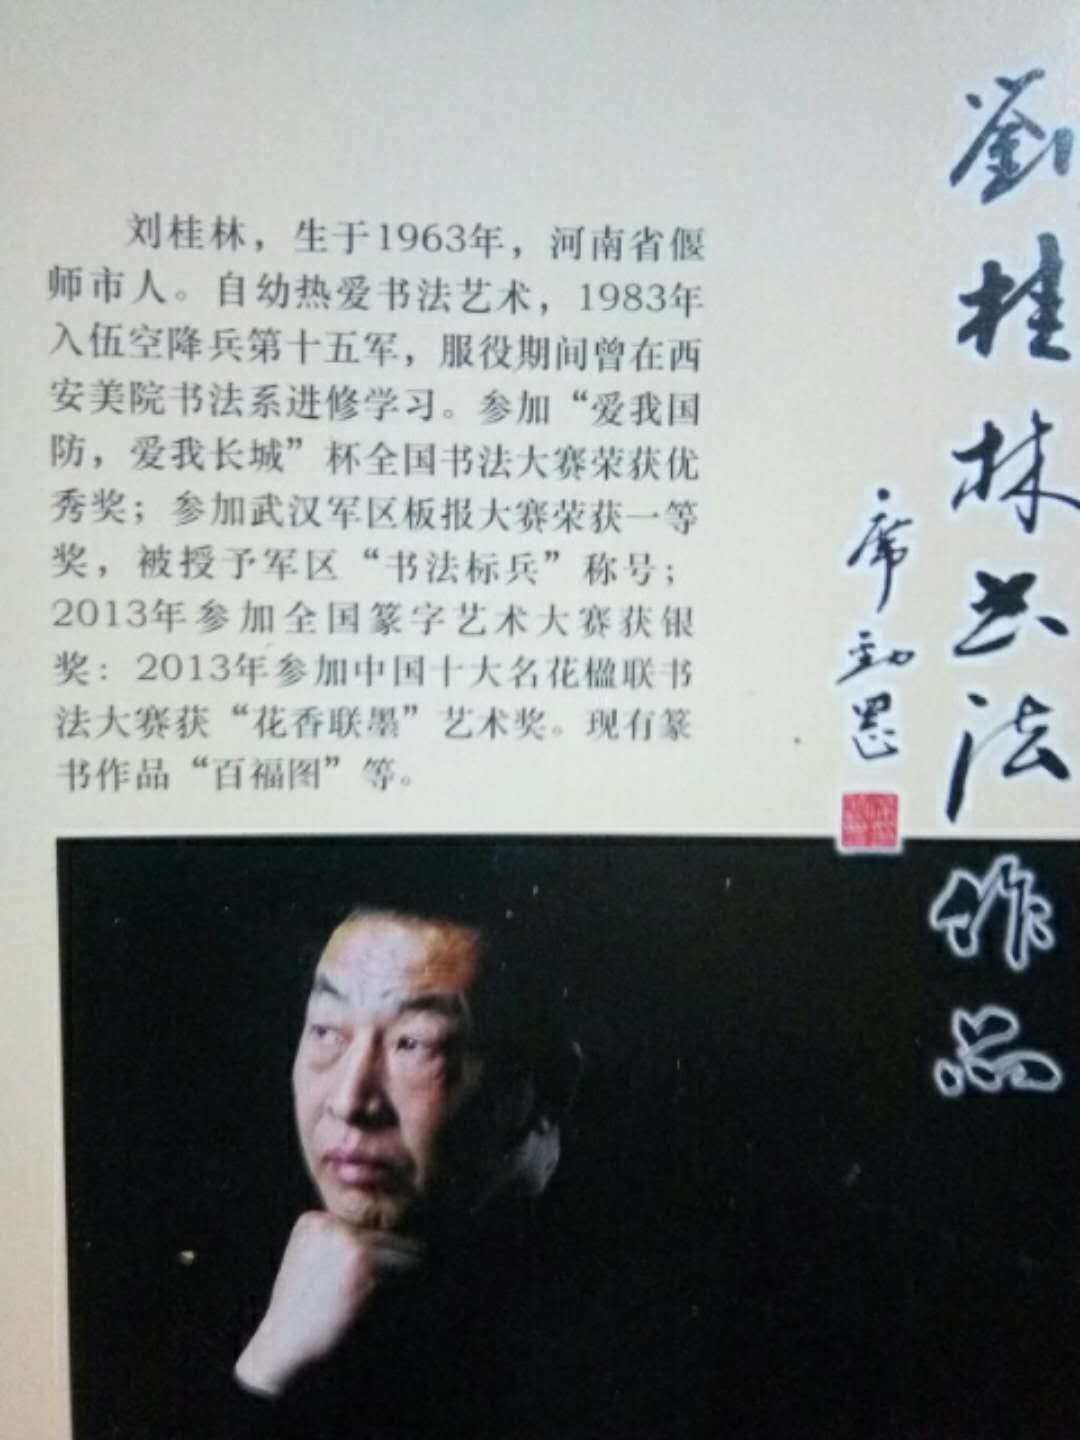 刘桂林，生于1963年，河南省偃
师市人。自幼热爱书法艺术，1983年
入伍空降兵第十五军，服役期间曾在西
安美院书法系进修学习。参加“爱我国
防，爱我长城”杯全国书法大赛荣获优
秀奖；参加武汉军区板报大赛荣获一等
奖，被授予军区“书法标兵”称号；
2013年参加全国篆字艺术大赛获银
奖：2013年参加中国十大名花楹联书
法大赛获“花香联墨”艺术奖。现有篆
书作品“百福图”等。
劉桂林书法作品
席